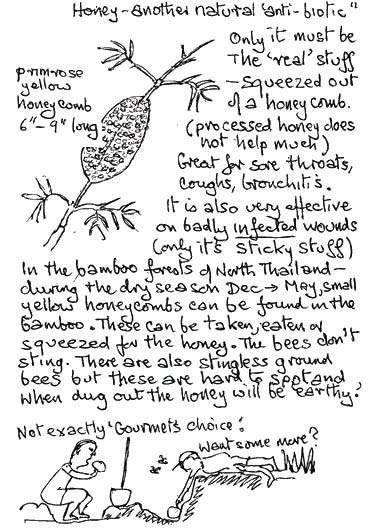 Honey - another natural 'anti-biotic'
Only it must be
the 'real' stuff
- squeezed out
of a honeycomb.
(processed honey does
not help much)
Great for sore throats,
coughs, bronchitis.
primrose
yellow
honeycomb
6" - 9" long
It is also very effective
on badly infected wounds
(only it's sticky stuff)
In the bamboo forests of North Thailand -
during the dry season Dec → May, small
yellow honeycombs can be found in the
bamboo. These can be taken, eaten or
squeezed for the honey. The bees don't
sting. There are also stingless ground
bees but these are hard to spot and
when dug out the honey will be 'earthy'.
Not exactly 'Gourmet's choice'.
Want some more?